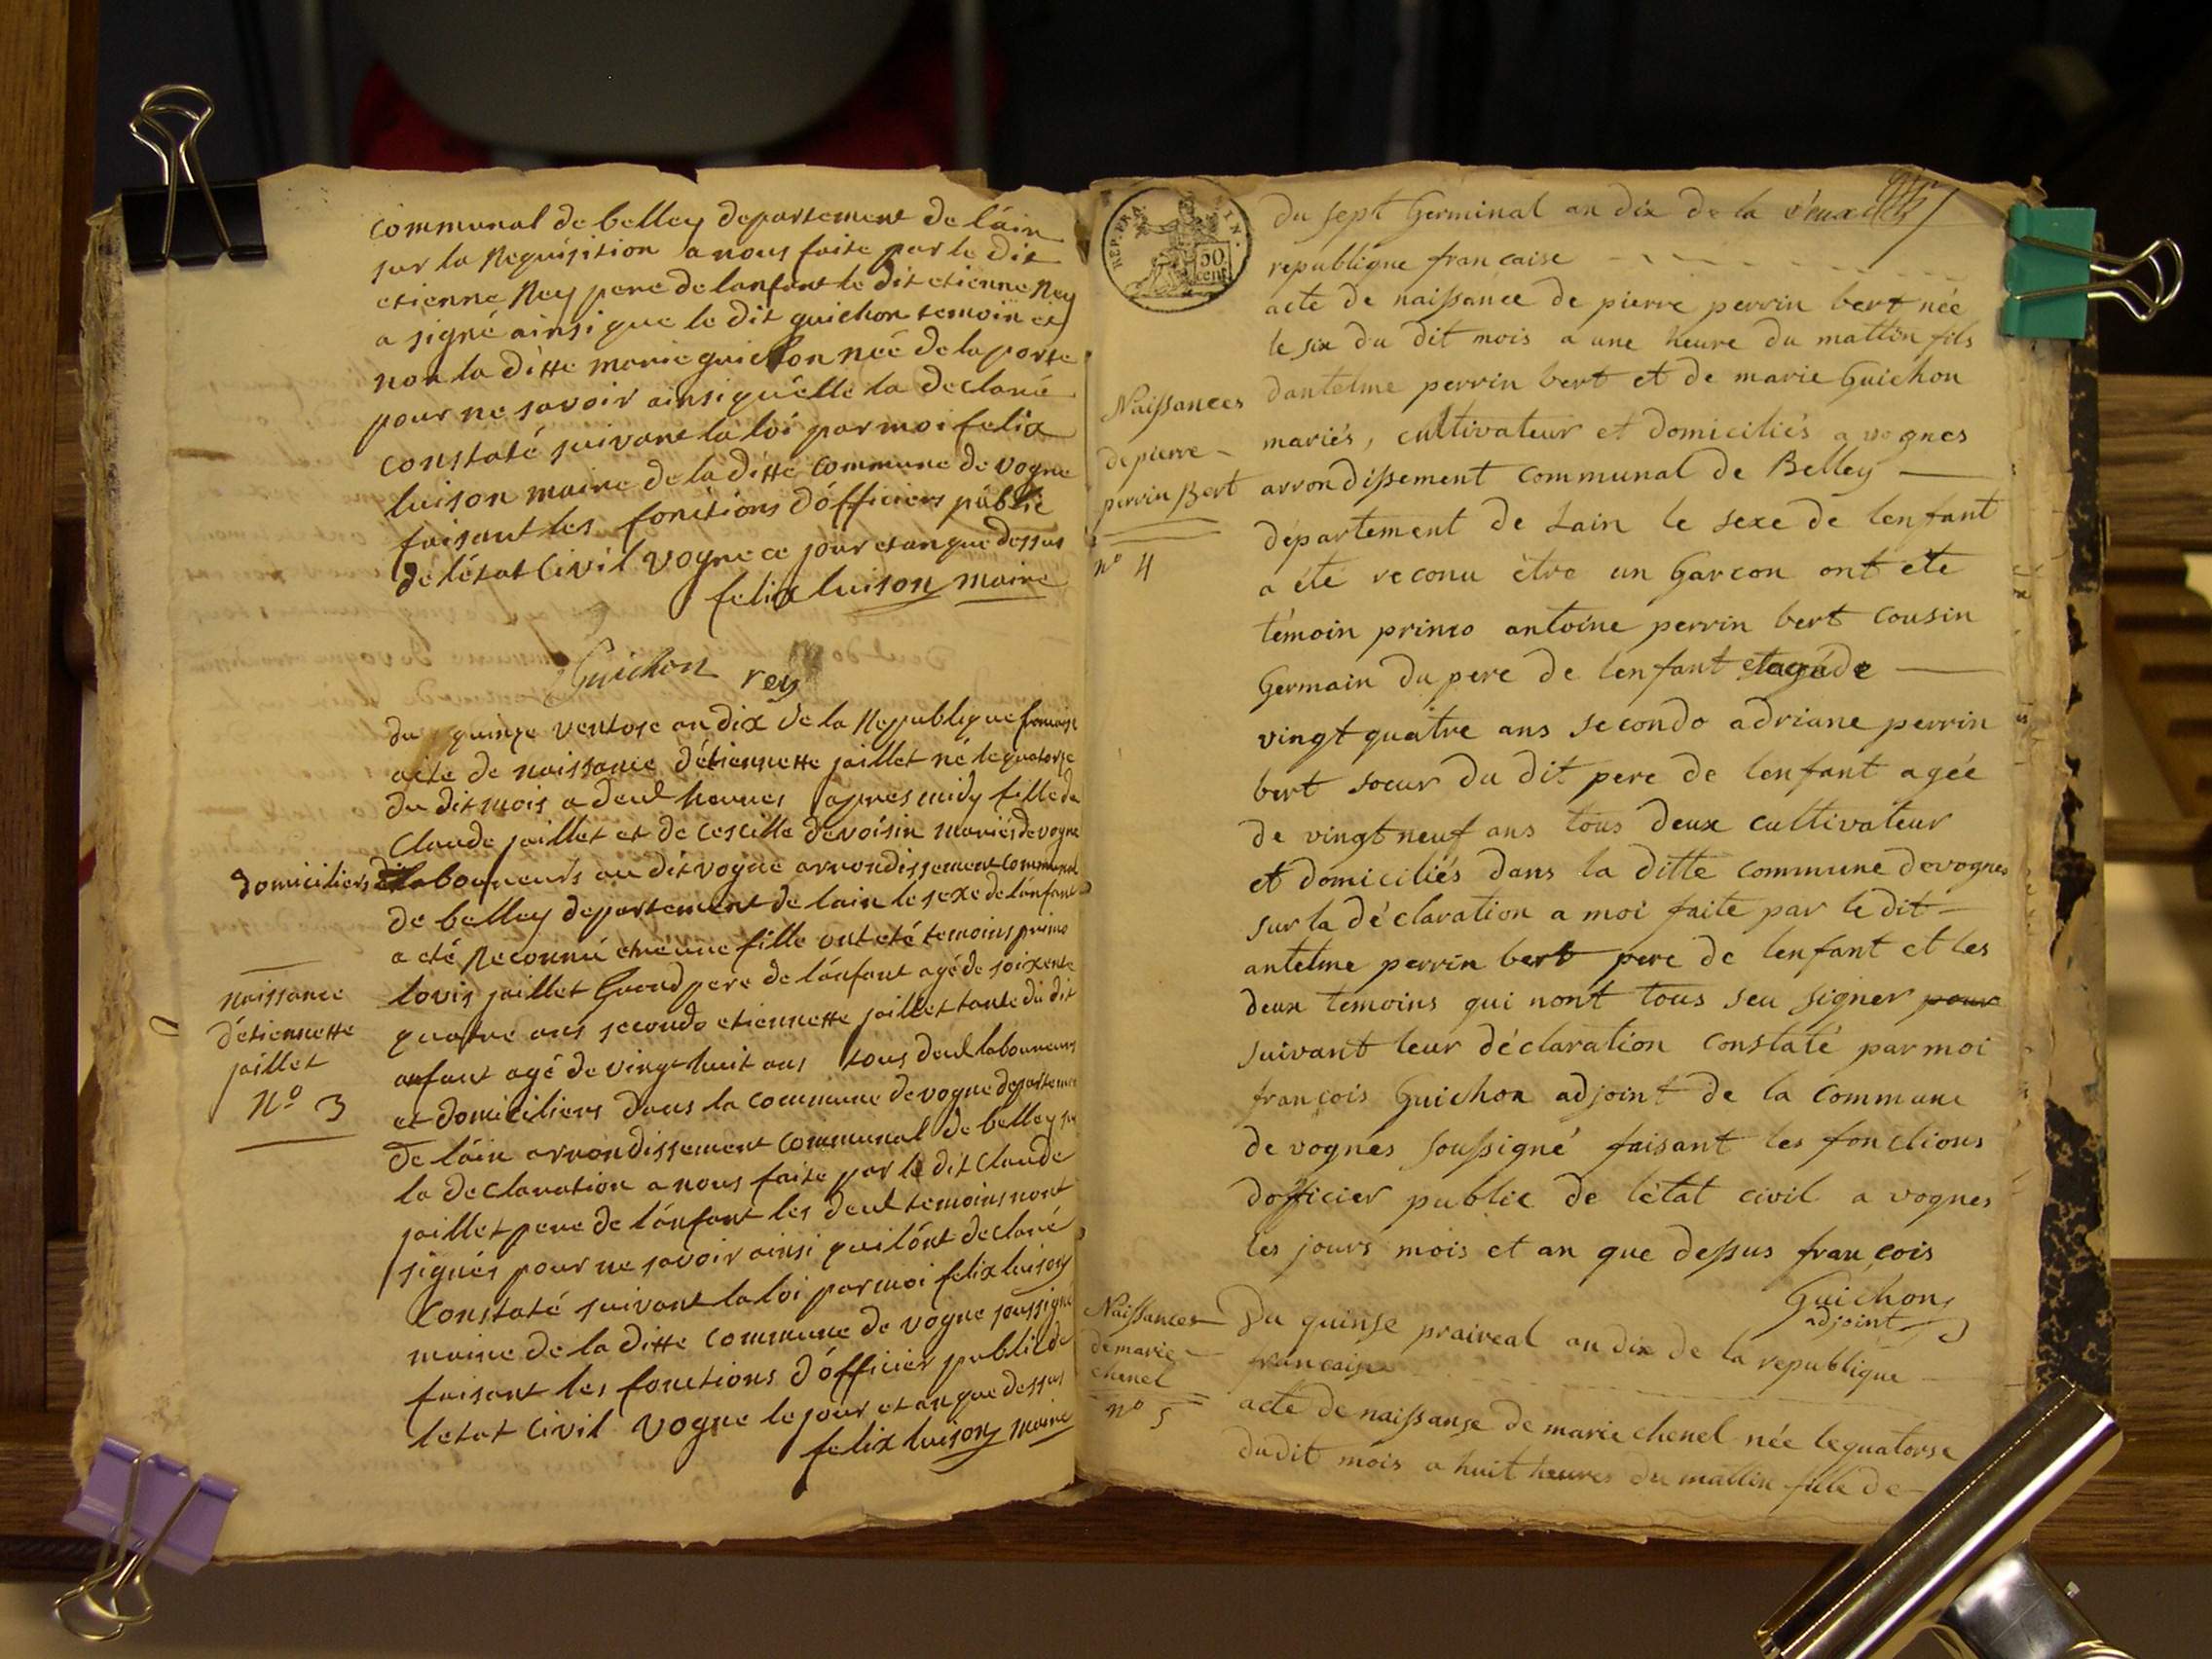 communal de belley departement de láin
sur la Requisition a nous faite par le dit
etienne Rey pere de lanfant le dit etienne Rey
a signé ainsi que le dit guichon temoin et
non la ditte marie guichon née de la porte
pour ne savoir ainsi quélle la declaré
constaté suivant la loi par moi felix
luison maire de la ditte commune de vogne
faisant les fonctions dófficiers public
de létat Civil vogne ce jour et an que dessus
felix luison maire
Guichon rey
du quinze ventose an dix de la Republique francaise
acte de naissance détiennette jaillet né le quatorze
du dit mois a deul heures apres midy fille de
Claude jaillet et de cescille devoisin mariés de vogne
domiciliers laboureurs au dit vogne arrondissement communal
de belley departement de lain le sexe de lánfant
a eté Reconnú etre une fille ont eté temoins primo
naissance
détiennette
jaillet
No 3
lovis jaillet Grand pere de lánfant agé de soixente
quatre ans secondo etiennette jaillet tante du dit
anfant agé de vingt huit ans tous deul laboureurs
et domiciliers dans la commune de vogne departement
de láin arrondissement communal de belley sur
la declaration a nous faite par le dit Claude
jaillet pere de lánfant les deul temoins nont
signés pour ne savoir ainsi quilónt declaré
Constaté suivant la loi par moi felix luison
maire de la ditte commune de vogne soussigné
faisant les fonctions dófficier public de
letat Civil vogne le jour et an que dessus
felix luison maire
REP. FRA.
50
cent
T I N.
du sept Germinal an dix de la
republique francaise
acte de naissance de pierre perrin bert née
le six du dit mois a une heure du mattin fils
Naissances
de pierre
perrin Bert
no 4
dantelme perrin bert et de marie Guichon
mariés, cultivateur et domiciliés a vognes
arrondissement communal de Belley
département de Lain le sexe de lenfant
a été reconu être un Garcon ont été
témoin primo antoine perrin bert cousin
Germain du pere de lenfant et agé de
vingt quatre ans secondo adriane perrin
bert soeur du dit pere de lenfant agée
de vingt neuf ans tous deux cultivateur
et domiciliés dans la ditte commune de vognes
sur la déclaration a moi faite par le dit
antelme perrin bert pere de lenfant et les
deux temoins qui nont tous seu signer pour
suivant leur déclaration constaté par moi
francois Guichon adjoint de la commune
de vognes soussigné faisant les fonctions
dofficier public de létat civil a vognes
les jours mois et an que dessus francois
Guichon
adjoint
Naissances
de marie
chenel
no 5
Du quinse praireal an dix de la republique
francaise
acte de naissanse de marie chenel née le quatorse
du dit mois a huit heures du mattin fille de